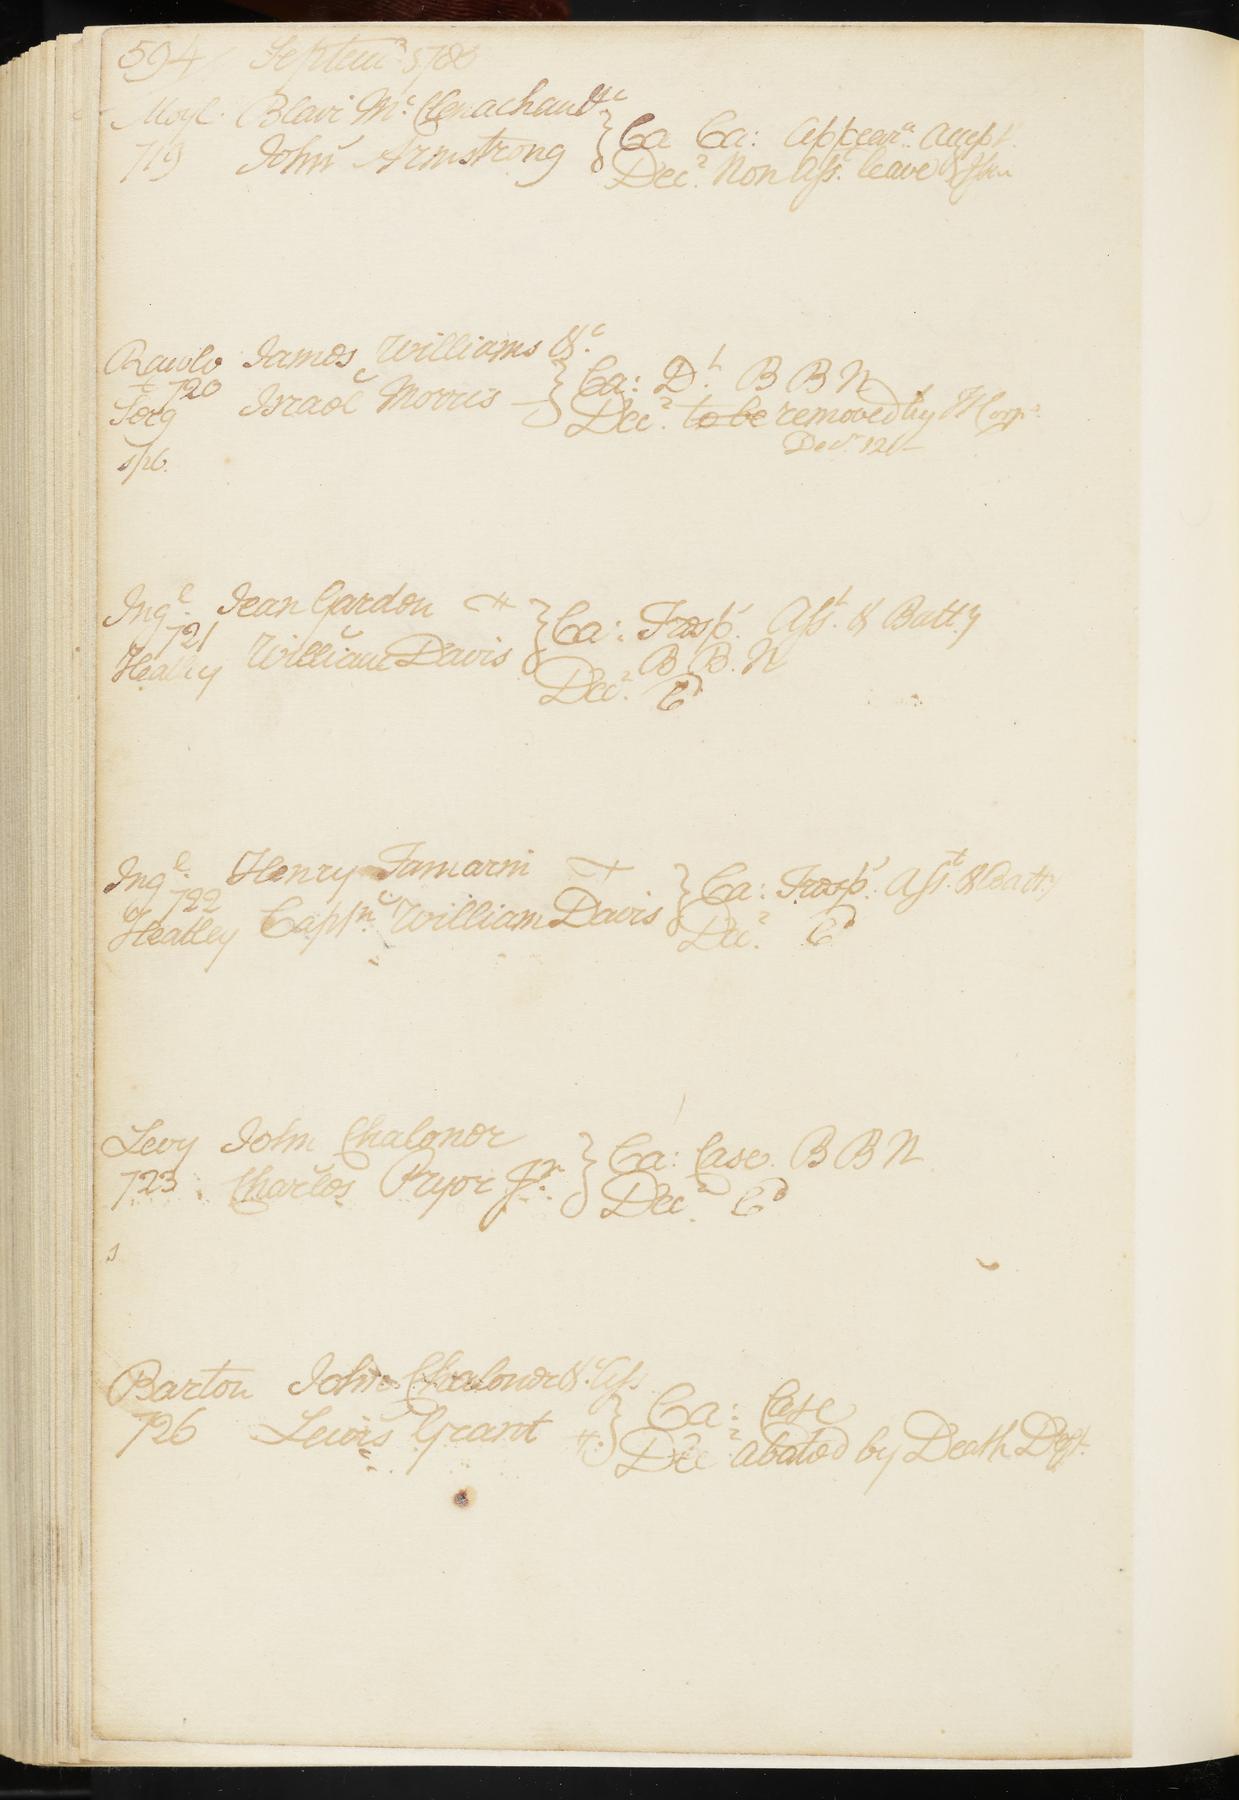 594 Septem.r 1786
Moyl. Blair Mc Clenachan &c
719 John Armstrong } Ca Ca: Appear.a Accept.
Dec.r Non Ass.t leave
Rawle James Williams &.c
720 Israel Morris } Ca: D.t B B N
Serg Dec.r to be removed by H Corp.s
Dec.r 12
Ing.l Jean Gardon } Ca: Tresp.s Ass.t & Batt.y
721 William Davis B B. N
Heatley Dec.r
Ing.l Henry } Ca: Tresp.s Ass.t & Batt.y
& 722
Heatley Capp.n William Davis Dec.r
Levy John Chaloner } Ca: Case. B B N
723 Charles Pryor Jr. Dec.r
s
Barton John Chaloner & Ass
726 Lewis Grant } Ca: Case
Dec.r abated by Death Deft.